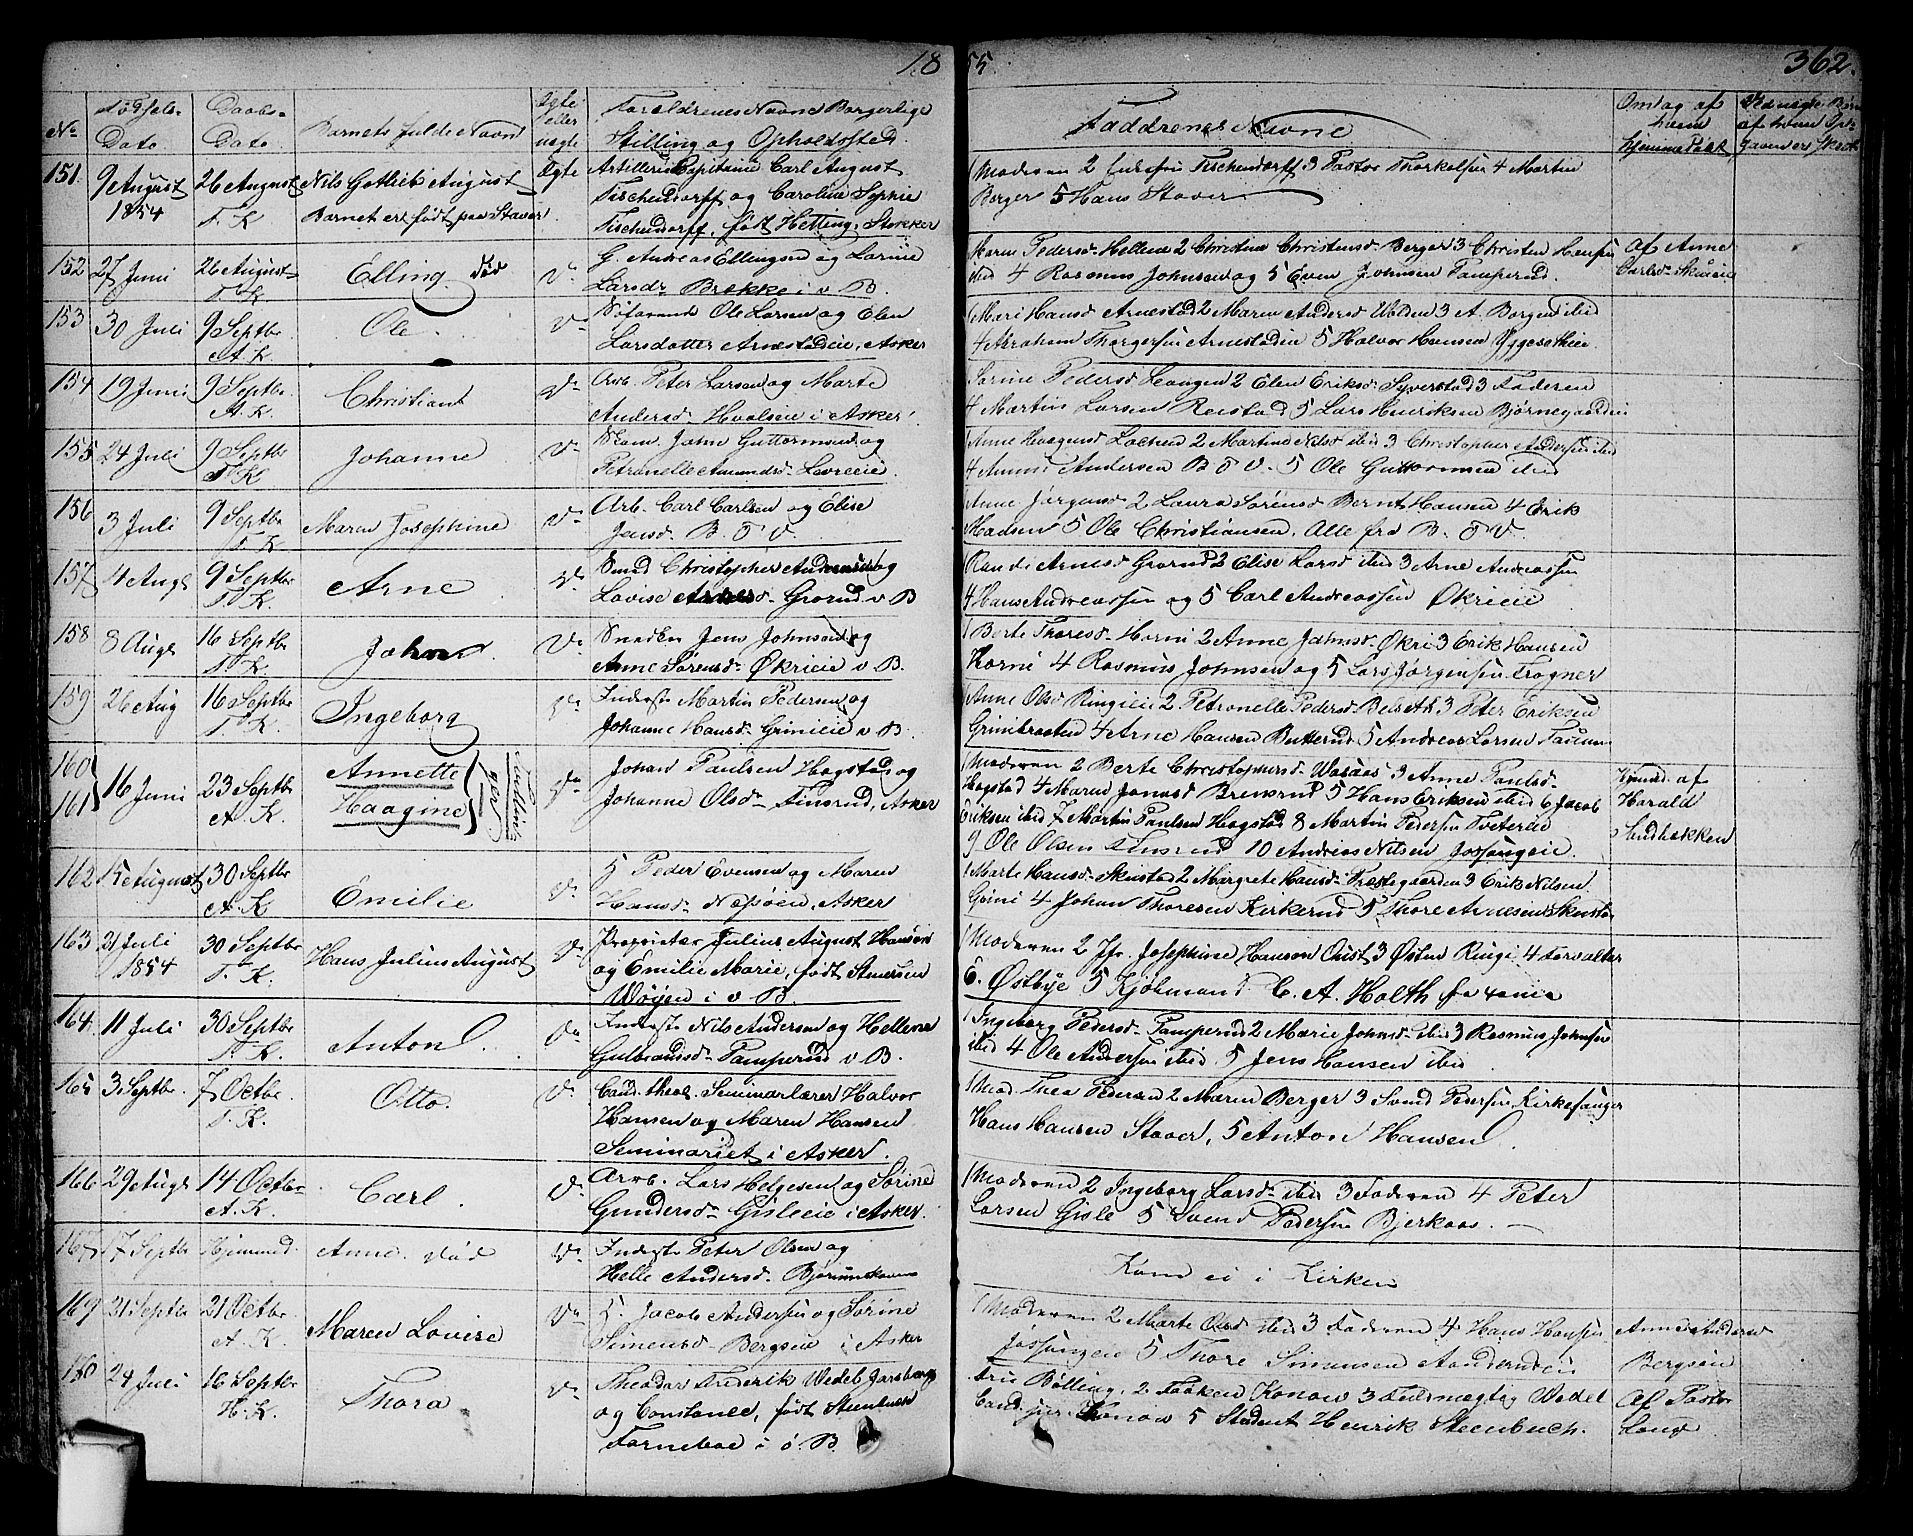 18
55.
362.
No
Fødsels-Dato
Daabs-Dato
Barnets fulde Navn
Ægte eller uægte
Forældrenes Navne Borgerlige Stilling og Opholdssted.
Faddrenes Navne
Om dag af hvem hjemmedøbt
151. 9 August 1854
26 August T. K
Nils Gotlieb August
Barnet er født paa Staver.
Ægte
Artilleri Capitaine Carl August
Tischendorff og Caroline Sophie
Tischendorff, født Hetting, Stokker
1 Moderen 2 Tischendorff 3 Pastor Thorkelsen 4 Martin
Berger 5 Hans Staver
152 27 Juni
26 August T. K
Elling død
Do
G. Andreas Ellingsen og Larine
Larsdr Brække i v B.
Maren Pedersd. Hellen 2 Christine Christensd. Berger 3 Christen Hansen
ibid 4 Rasmus Johnsen og 5 Even Johnsen Tamperud.
af Anne
Carlsd.
153 30 Juli
9 Septbr A. K
Ole.
Do
Ole Larsen og Elen
Larsdatter Arnestadeie, Asker
1 Mari Hansd Arnestad 2 Maren Andersd Wolden 3 A. Borgen ibid
4 Abraham Thorgersen Arnestadeie 5 Halvor Hansen Yggesetheie.
154 19 Juni
9 Septbr. A. K.
Christian
Do
Arb. Peter Larsen og Marte
Andersd. Hvalseie i Asker.
Karine Pedersd Leangen 2 Elen Eriksd. Syverstad 3 Faderen
4 Martin Larsen Reistad 5 Lars Henriksen Bjørnegaardeie
155 24 Juli
9 Septbr T. K
Johanne
Do
John Guttormsen og
Petronelle Amundsd. Løvreeie.
1 Anne Haagensd Løchen 2 Martine Nilsd ibid 3 Christopher Andersen ibid
4 Andersen B T V. 5 Ole Guttormsen ibid
156 3 Juli
9 Septbr T. K
Maren Josephine
Do
Arb. Carl Carlsen og Elise
Jensd. B. T V.
1 Anne Jørgensd 2 Laura Sørensd Bernt Hansen 4 Erik
Madsen 5 Ole Christiansen, Alle fra B. T V.
157 4 Augs
9 Septbr T. K.
Arne
Do
Smed Christopher Andersen og
Lovise Andersd. Grorud v B
1 Randi Arnesd Grorud 2 Elise Larsd ibid 3 Arne Andreassen
4 Hans Andreassen og 5 Carl Andreassen Økrieie
158 8 Augs
16 Septbr T. K.
Johan.
Do
Snedker Jens Johnsen og
Anne Sørensd. Økrieie v B.
1 Berte Thoresd. Horni 2 Anne Johnsd. Økri 3 Erik Hansen
Horni 4 Rasmus Johnsen og 5 Lars Jørgensen Frogner
159 26 Aug
16 Septbr T. K.
Ingeborg
Do
Inderste Martin Pedersen og
Johanne Hansd. Grinieie v B.
1 Anne Olsd Ringieie 2 Petronelle Pedersd. 3 Peter Eriksen
Grinibraaten 4 Arne Hansen Butterud 5 Andreas Larsen
160
161
16 Juni
23 Septbr A. K.
Annette
Haagine
Tvillinger
Do
Johan Paulsen Hogstad og
Johanne Olsd. Finsrud, Asker
1 Moderen 2 Berte Christophersd. 3 Anne Paulsd.
Hogstad 4 Maren Jonasd Brensrud 5 Hans Eriksen ibid 6 Jacob
Eriksen ibid 7 Martin Paulsen Hogstad 8 Martin Pedersen Tvetereie
9 Ole Olsen Finsrud 10 Andreas Nilsen Jossangeie.
Hjemmed. af
Harald
Sandbækken
162 15 August
30 Septbr A. K
Emilie
Do
Peder Evensen og Maren
Hansd. Næsøen, Asker
1 Marte Hansd. Skustad 2 Margrete Hansd. Præstegaarden 3 Erik Nilsen
Grini 4 Johan Thoresen Kirkerud 5 Thore Arnesen Skustad
163 21 Juli 1854
30 Septbr T. K.
Hans Julius August
Do
Proprietær Julius August Hansen
og Emilie Marie, født Simensen
Wøyen i v B.
1 Moderen 2 Jfr. Josephine Hansen 3 Østen Ringi 4 Forvalter
E. Østbye 5 Kjøbmand C. A. Holth fra
164. 11 Juli
30 Septbr T. K.
Anton.
Do
Inderste Nils Andersen og Hellene
Gulbrandsd. Tamperud v B.
1 Ingeborg Pedersd. Tamperud 2 Marie Johnsd. ibid 3 Rasmus Johnsen
ibid 4 Ole Andersen ibid 5 Jens Hansen ibid
165 3 Septbr.
7 Octbr. T. K.
Otto.
Do
Cand. theol. Seminarlærer Halvor
Hansen og Maren Hansen
Seminariet i Asker.
1 Mad. Thea Pedersen 2 Maren Berger 3 Svend Pedersen Kirkesanger
Hans Hansen Staver, 5 Anton Hansen.
166 29 Augs
14 Octbr. A. K.
Carl.
Do
Arb. Lars Helgesen og Sørine
Gundersd. Gisleeie i Asker.
1 Moderen 2 Ingeborg Larsd. ibid 3 Faderen 4 Peter
Larsen Gisle 5 Svend Pedersen Bjerkaas.
167 17 Septbr
Hjemmed.
Anne. død
Do
Inderste Peter Olsen og
Helle Andersd.
Kom ei i Kirken
169 21 Septbr
21 Octbr A. K.
Maren Lovise
Do
Jacob Andersen og Sørine
Simensd. Bergseie i Asker
1 Moderen 2 Marte Olsd ibid 3 Faderen 4 Hans Hansen
Jossangeie 5 Thore Simensen
Anne Andersd
Bergseie
24 Juli
16 Septbr H. K.
Thora
Do
Theodor Frederik Wedel Jarlsberg
og Constance, født Steenbuch
Forneboe i ø. B.
Bølling, 2 Frøken Konow 3 Fuldmægtig Wedel
Cand. jur. Konow 5 Student Henrik Steenbuch.
af Pastor
Lange